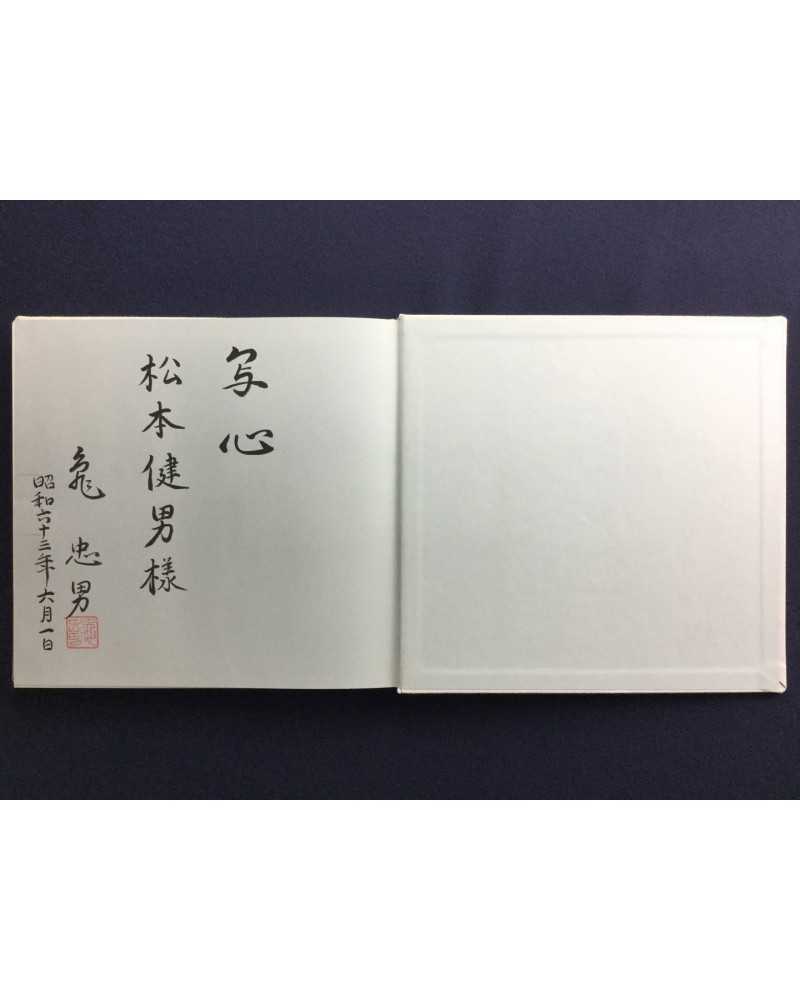 写心
松本健男様
亀 忠男
昭和六十三年 六月一日